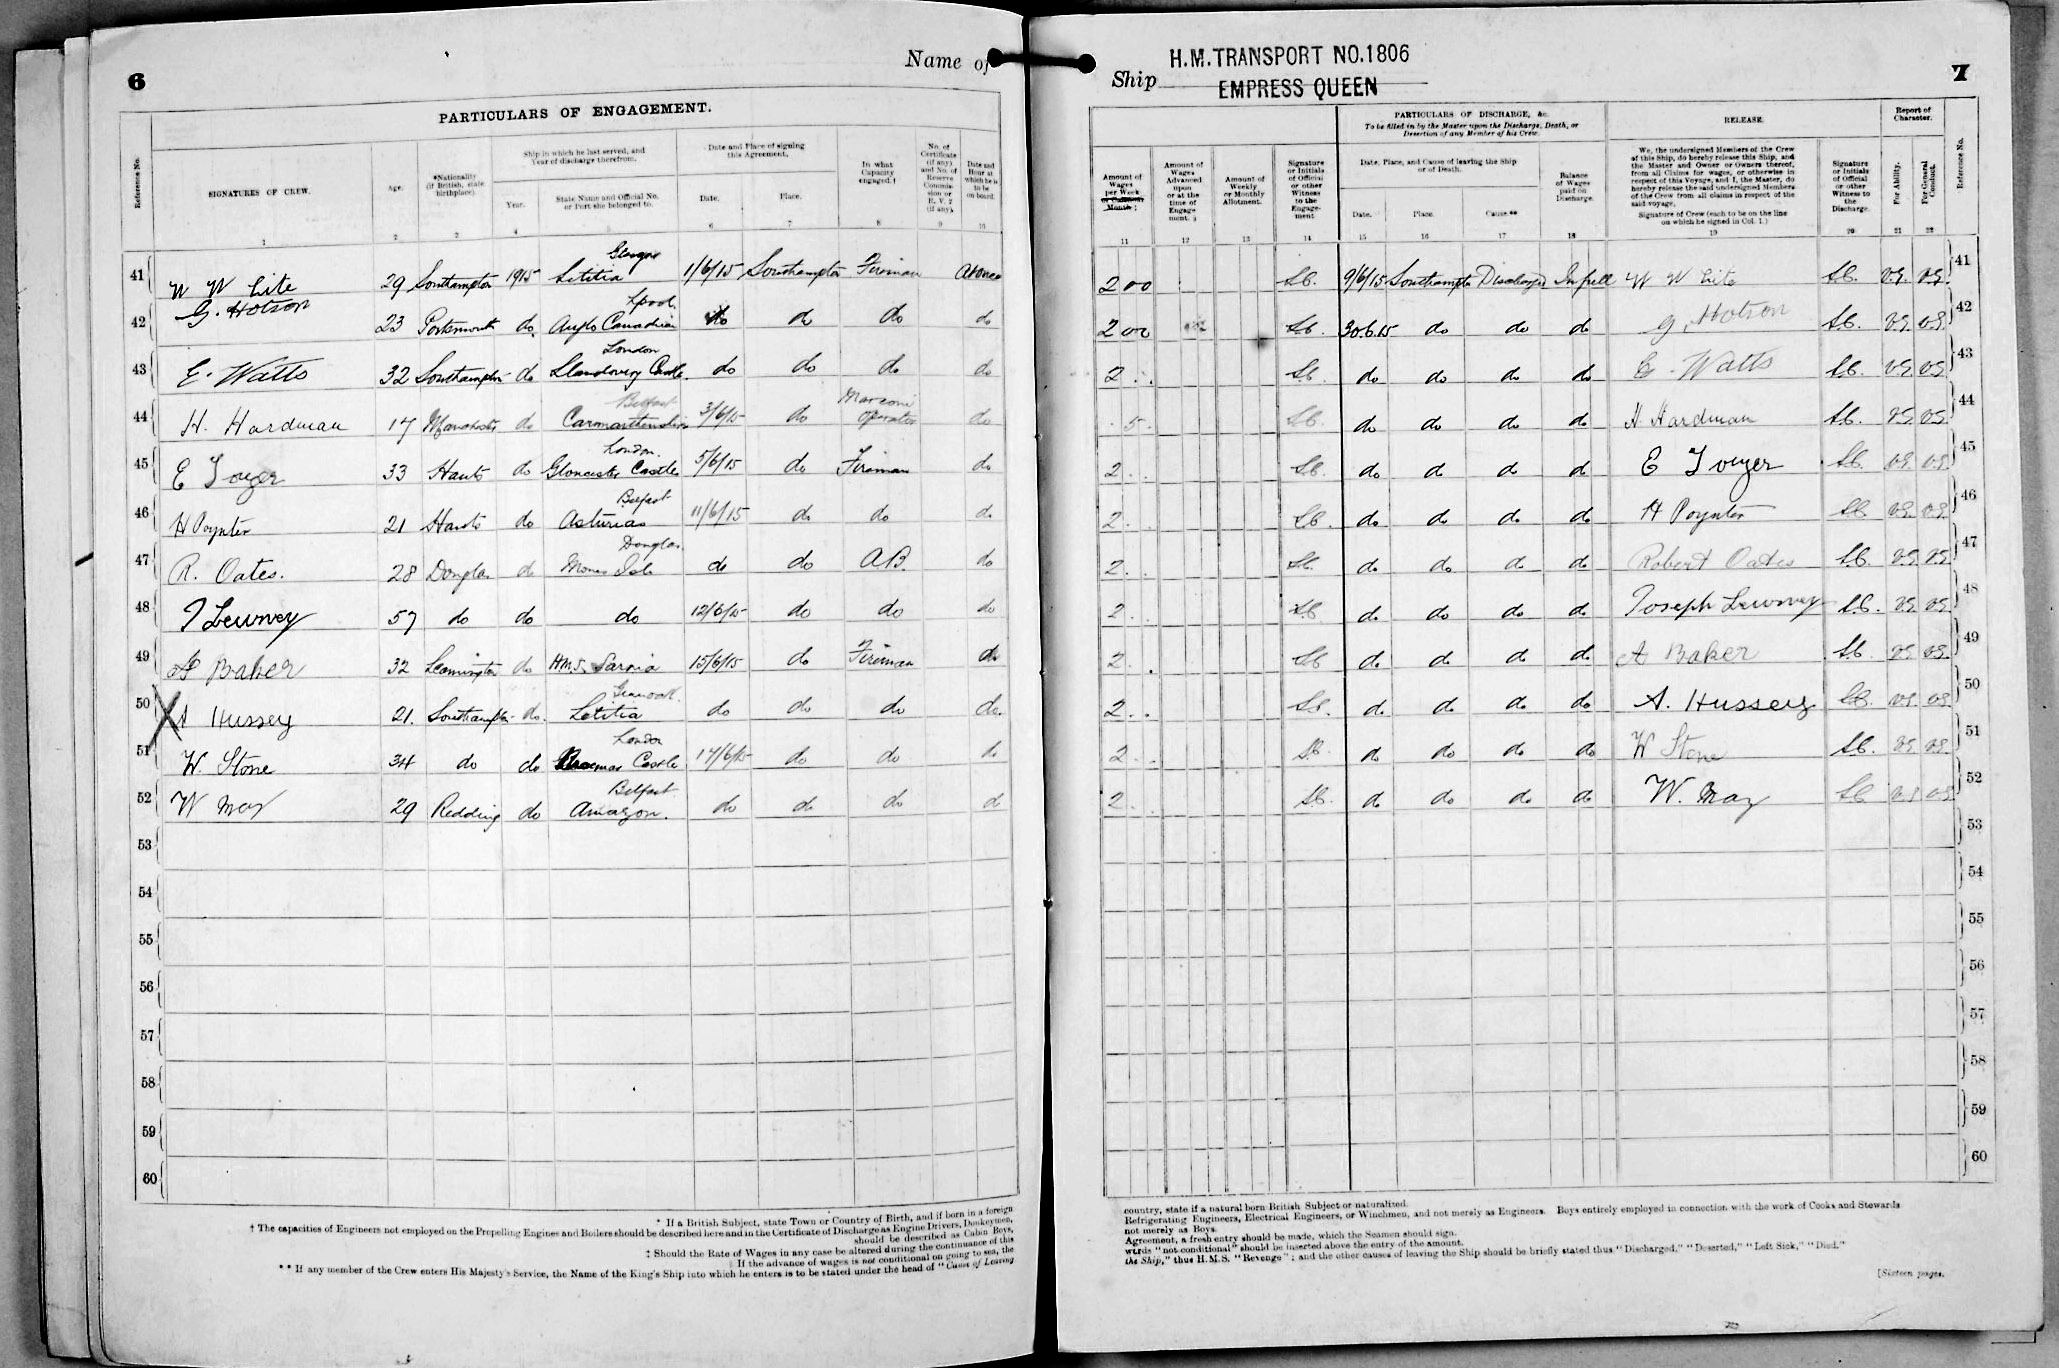 6
Name of
PARTICULARS OF ENGAGEMENT.
Reference No.
SIGNATURES OF CREW.
Age.
*Nationality (if British, state birthplace).
Ship in which he last served, and Year of discharge therefrom.
Year.
State Name and Official No. or Port she belonged to.
Date and Place of signing this Agreement.
Date.
Place.
In what Capacity engaged.†
No. of Certificate (if any) and No. of Reserve Commission or R.V. 2 (if any).
Date and Hour at which he is to be on board.
1 2 3 4 5 6 7 8 9 10
41 W W Lite 29 Southampton 1915 Glasgow Letitia 1/6/15 Southampton Fireman At once
42 G. Hotson 23 Portsmouth do Lpool Anglo Canadian do do do do
43 E. Watts 32 Southampton do London Llandovery Castle do do do do
44 H. Hardman 17 Manchester do Belfast Carmarthenshire 3/6/15 do Marconi Operator do
45 E Toyer 33 Hants do London. Gloucester Castle 5/6/15 do Fireman do
46 H Poynter 21 Hants do Belfast Asturias 11/6/15 do do do
47 R. Oates. 28 Douglas do Douglas. Monas Isle do do AB. do
48 J Lewney 57 do do do 12/6/15 do do do
49 A Baker 32 Leamington do H.M.S. Sarnia 15/6/15 do Fireman do
50 A Hussey 21. Southampton do. Greenock Letitia do do do do.
51 W. Stone 34 do do London Braemar Castle 17/6/15 do do do
52 W May 29 Redding do Belfast. Amazon. do do do do
53
54
55
56
57
58
59
60
* If a British Subject, state Town or Country of Birth, and if born in a foreign
† The capacities of Engineers not employed on the Propelling Engines and Boilers should be described here and in the Certificate of Discharge as Engine Drivers, Donkeymen,
should be described as Cabin Boys,
‡ Should the Rate of Wages in any case be altered during the continuance of this
If the advance of wages is not conditional on going to sea, the
** If any member of the Crew enters His Majesty's Service, the Name of the King's Ship into which he enters is to be stated under the head of "Cause of Leaving
7
Ship
H.M. TRANSPORT NO. 1806
EMPRESS QUEEN
Amount of Wages per Week or Calendar Month ‡
Amount of Wages Advanced upon or at the time of Engagement. §
Amount of Weekly or Monthly Allotment.
Signature or Initials of Official or other Witness to the Engagement
PARTICULARS OF DISCHARGE, &c.
To be filled in by the Master upon the Discharge, Death, or Desertion of any Member of his Crew.
Date, Place, and Cause of leaving the Ship or of Death.
Date.
Place.
Cause.**
Balance of Wages paid on Discharge.
RELEASE.
We, the undersigned Members of the Crew
of this Ship, do hereby release this Ship, and
the Master and Owner or Owners thereof,
from all Claims for wages, or otherwise in
respect of this Voyage, and I, the Master, do
hereby release the said undersigned Members
of the Crew from all claims in respect of the
said voyage.
Signature of Crew (each to be on the line on which he signed in Col. 1.)
Signature or Initials of Official or other Witness to the Discharge.
Report of Character.
For Ability.
For General Conduct.
Reference No.
11 12 13 14 15 16 17 18 19 20 21 22
2 0 0 9/6/15 Southampton Discharged In full W W Lite V.G. V.G. 41
2 0 0 30.6.15 do do do G. Hotson V.G. V.G. 42
2 . . do do do do E. Watts V.G. V.G. 43
. 5 . do do do do H. Hardman V.G. V.G. 44
2 . . do do do do E Toyer V.G. V.G. 45
2 . . do do do do H Poynter V.G. V.G. 46
2 . . do do do do Robert Oates V.G. V.G. 47
2 . . do do do do Joseph Lewney V.G. V.G. 48
2 . . do do do do A Baker V.G. V.G. 49
2 . . do do do do A. Hussey V.G. V.G. 50
2 . . do do do do W Stone V.G. V.G. 51
2 . . do do do do W. May V.G. V.G. 52
53
54
55
56
57
58
59
60
country, state if a natural born British Subject or naturalized.
Refrigerating Engineers, Electrical Engineers, or Winchmen, and not merely as Engineers. Boys entirely employed in connection with the work of Cooks and Stewards
not merely as Boys.
Agreement, a fresh entry should be made, which the Seamen should sign.
words "not conditional" should be inserted above the entry of the amount.
the Ship," thus H.M.S. "Revenge"; and the other causes of leaving the Ship should be briefly stated thus "Discharged," "Deserted," "Left Sick," "Died."
[Sixteen pages.